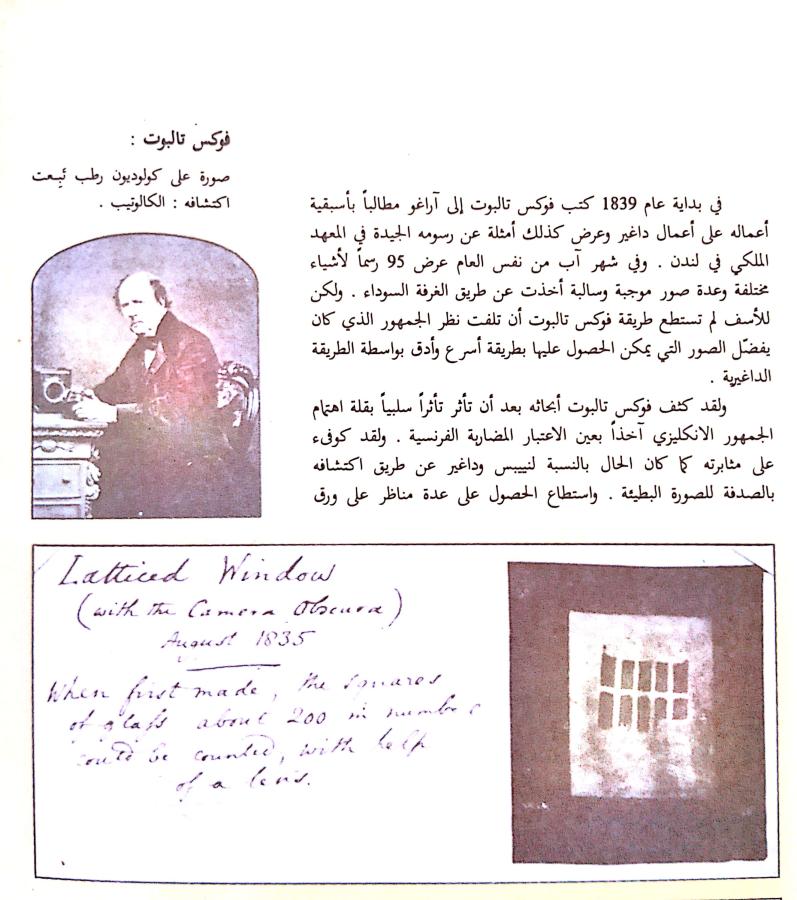 فوكس تالبوت :
صورة على كولوديون رطب تَبِعت
اكتشافه : الكالوتيب .
في بداية عام 1839 كتب فوكس تالبوت إلى آراغو مطالباً بأسبقية
أعماله على أعمال داغير وعرض كذلك أمثلة عن رسومه الجيدة في المعهد
الملكي في لندن . وفي شهر آب من نفس العام عرض 95 رسماً لأشياء
مختلفة وعدة صور موجبة وسالبة أخذت عن طريق الغرفة السوداء . ولكن
للأسف لم تستطع طريقة فوكس تالبوت أن تلفت نظر الجمهور الذي كان
يفضّل الصور التي يمكن الحصول عليها بطريقة أسرع وأدق بواسطة الطريقة
الداغيرية .
ولقد كثف فوكس تالبوت أبحاثه بعد أن تأثر تأثراً سلبياً بقلة اهتمام
الجمهور الانكليزي آخذاً بعين الاعتبار المضاربة الفرنسية . ولقد كوفىء
على مثابرته كما كان الحال بالنسبة لنييبس وداغير عن طريق اكتشافه
بالصدفة للصورة البطيئة . واستطاع الحصول على عدة مناظر على ورق
Latticed Window
(with the Camera Obscura)
August 1835
When first made, the squares
of glass about 200 in number
could be counted, with help
of a lens.